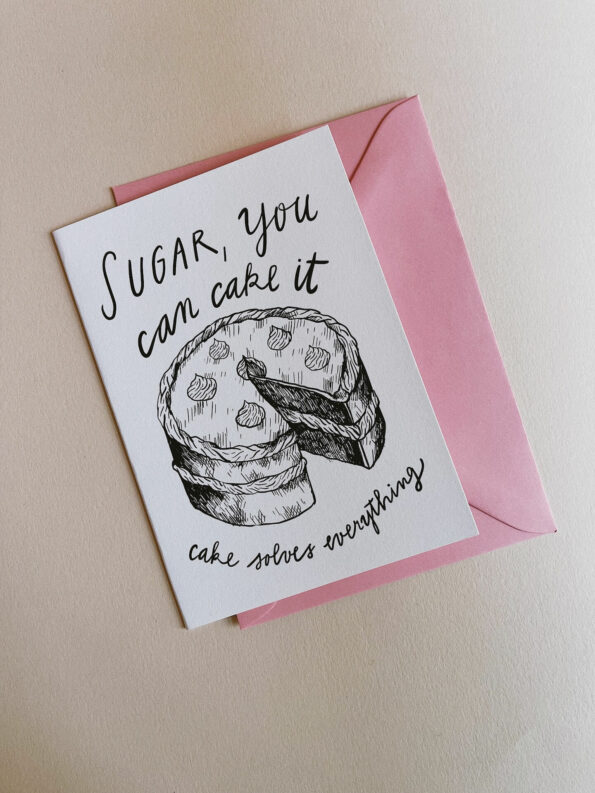 SUGAR, you
can cake it
cake solves everything